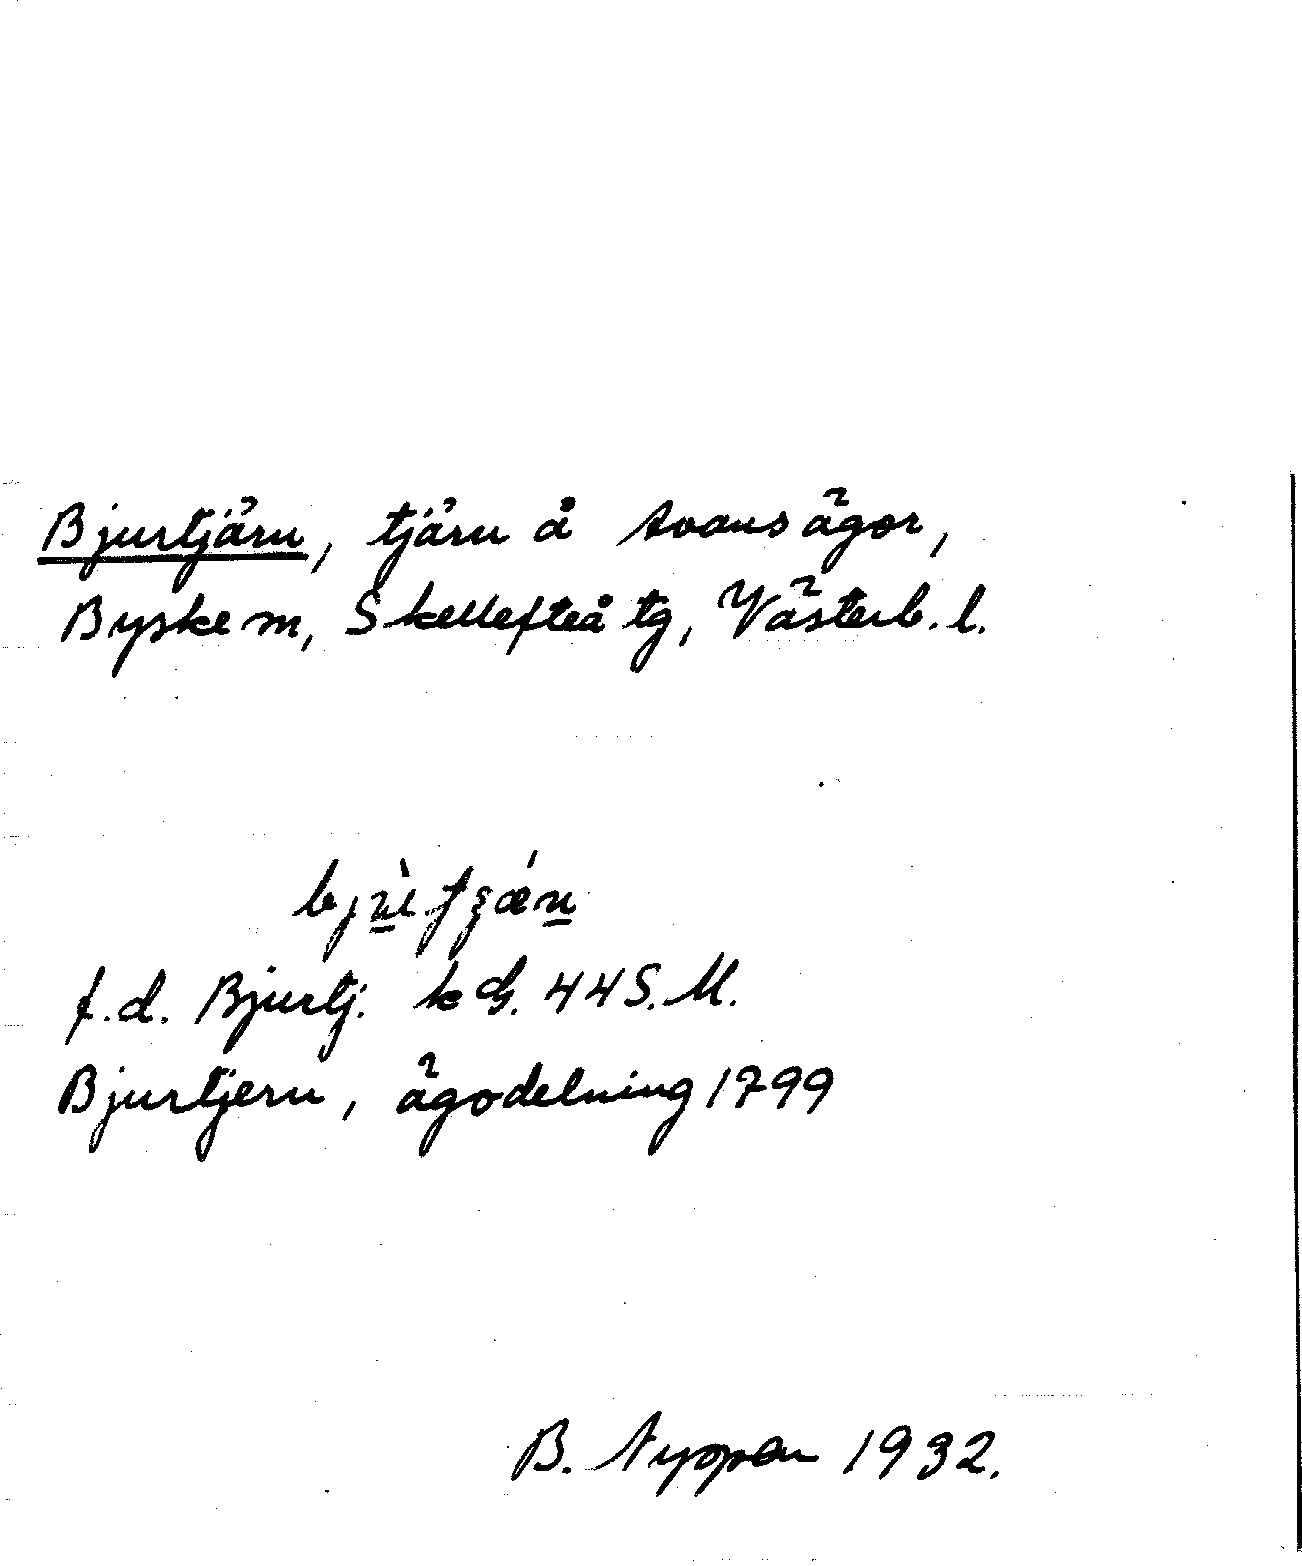 Bjurtjärn, tjärn å Avans ägor,
Byske sn, Skellefteå tg, Västerb. l.
f.d. Bjurtj. kG. 44 S.M.
Bjurtjern, ägodelning 1799
B. 1932.